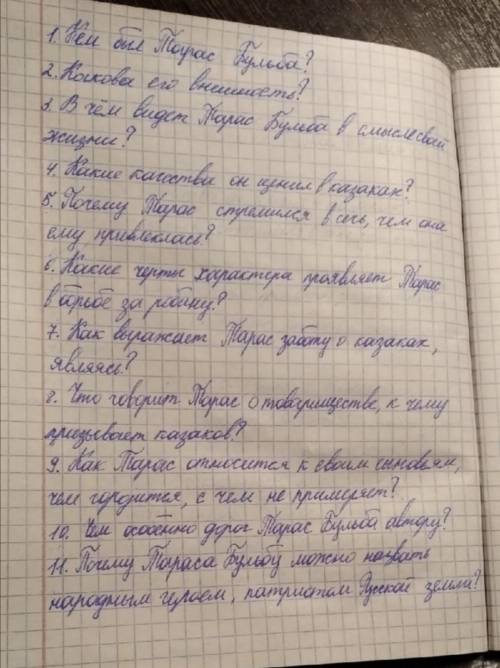 1. Кем был Тарас Бульба?
2. Какова его внешность?
3. В чём видет Тарас Бульба в смысле свой
жизни?
4. Какие качества он ценил в казаках?
5. Почему Тарас стремился в сечь, чем она
ему привлекласе?
6. Какие черты характера проявляет Тарас
в борьбе за родину?
7. Как выражает Тарас заботу о казаках,
являясь?
8. Что говорит Тарас о товариществе, к чему
призывает казаков?
9. Как Тарас относится к своим сыновьям,
чем гордится, с чем не примеряет?
10. Чем особенно дорог Тарас Бульба автору?
11. Почему Тараса Бульбу можно назвать
народным героем, патриотом Русской земли?